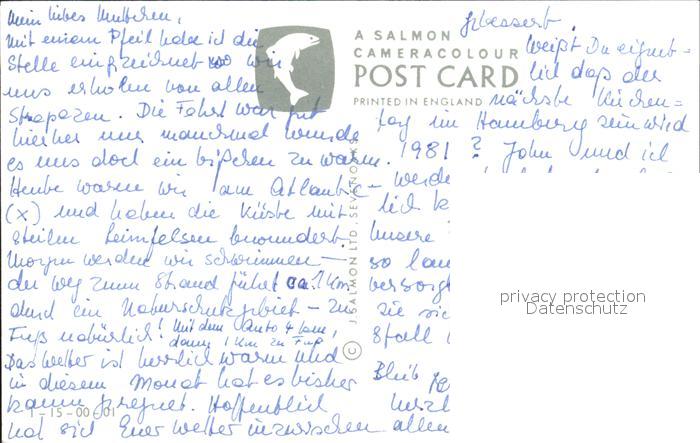 Mein liebes Muttchen,
Mit einem Pfeil habe ich die
Stelle eingezeichnet wo wir
uns erholen von allen
Strapazen. Die Fahrt war gut
hierher nur manchmal wurde
es uns doch ein bißchen zu warm.
Heute waren wir am Atlantic
(x) und haben die Küste mit
steilen Felsen bewundert.
Morgen werden wir schwimmen –
der Weg zum Strand führt ca. 1 km
durch ein Naturschutzgebiet – zu
Fuß natürlich! Mit dem Auto 4 km,
dann 1 km zu Fuß
Das Wetter ist herrlich warm und
in diesem Monat hat es bisher
kaum geregnet. Hoffentlich
hat sich Euer Wetter inzwischen allen
A SALMON
CAMERACOLOUR
POST CARD
PRINTED IN ENGLAND
© J. SALMON LTD., SEVENOAKS
1-15-00-01
gebessert.
Weißt Du eigent-
lich daß der
nächste Kirchen=
tag in Hamburg sein wird
1981? John und ich
werde
lich
Unsere
so lan
versorgt
sie sic
Stall
Bleib
herzl
privacy protection
Datenschutz